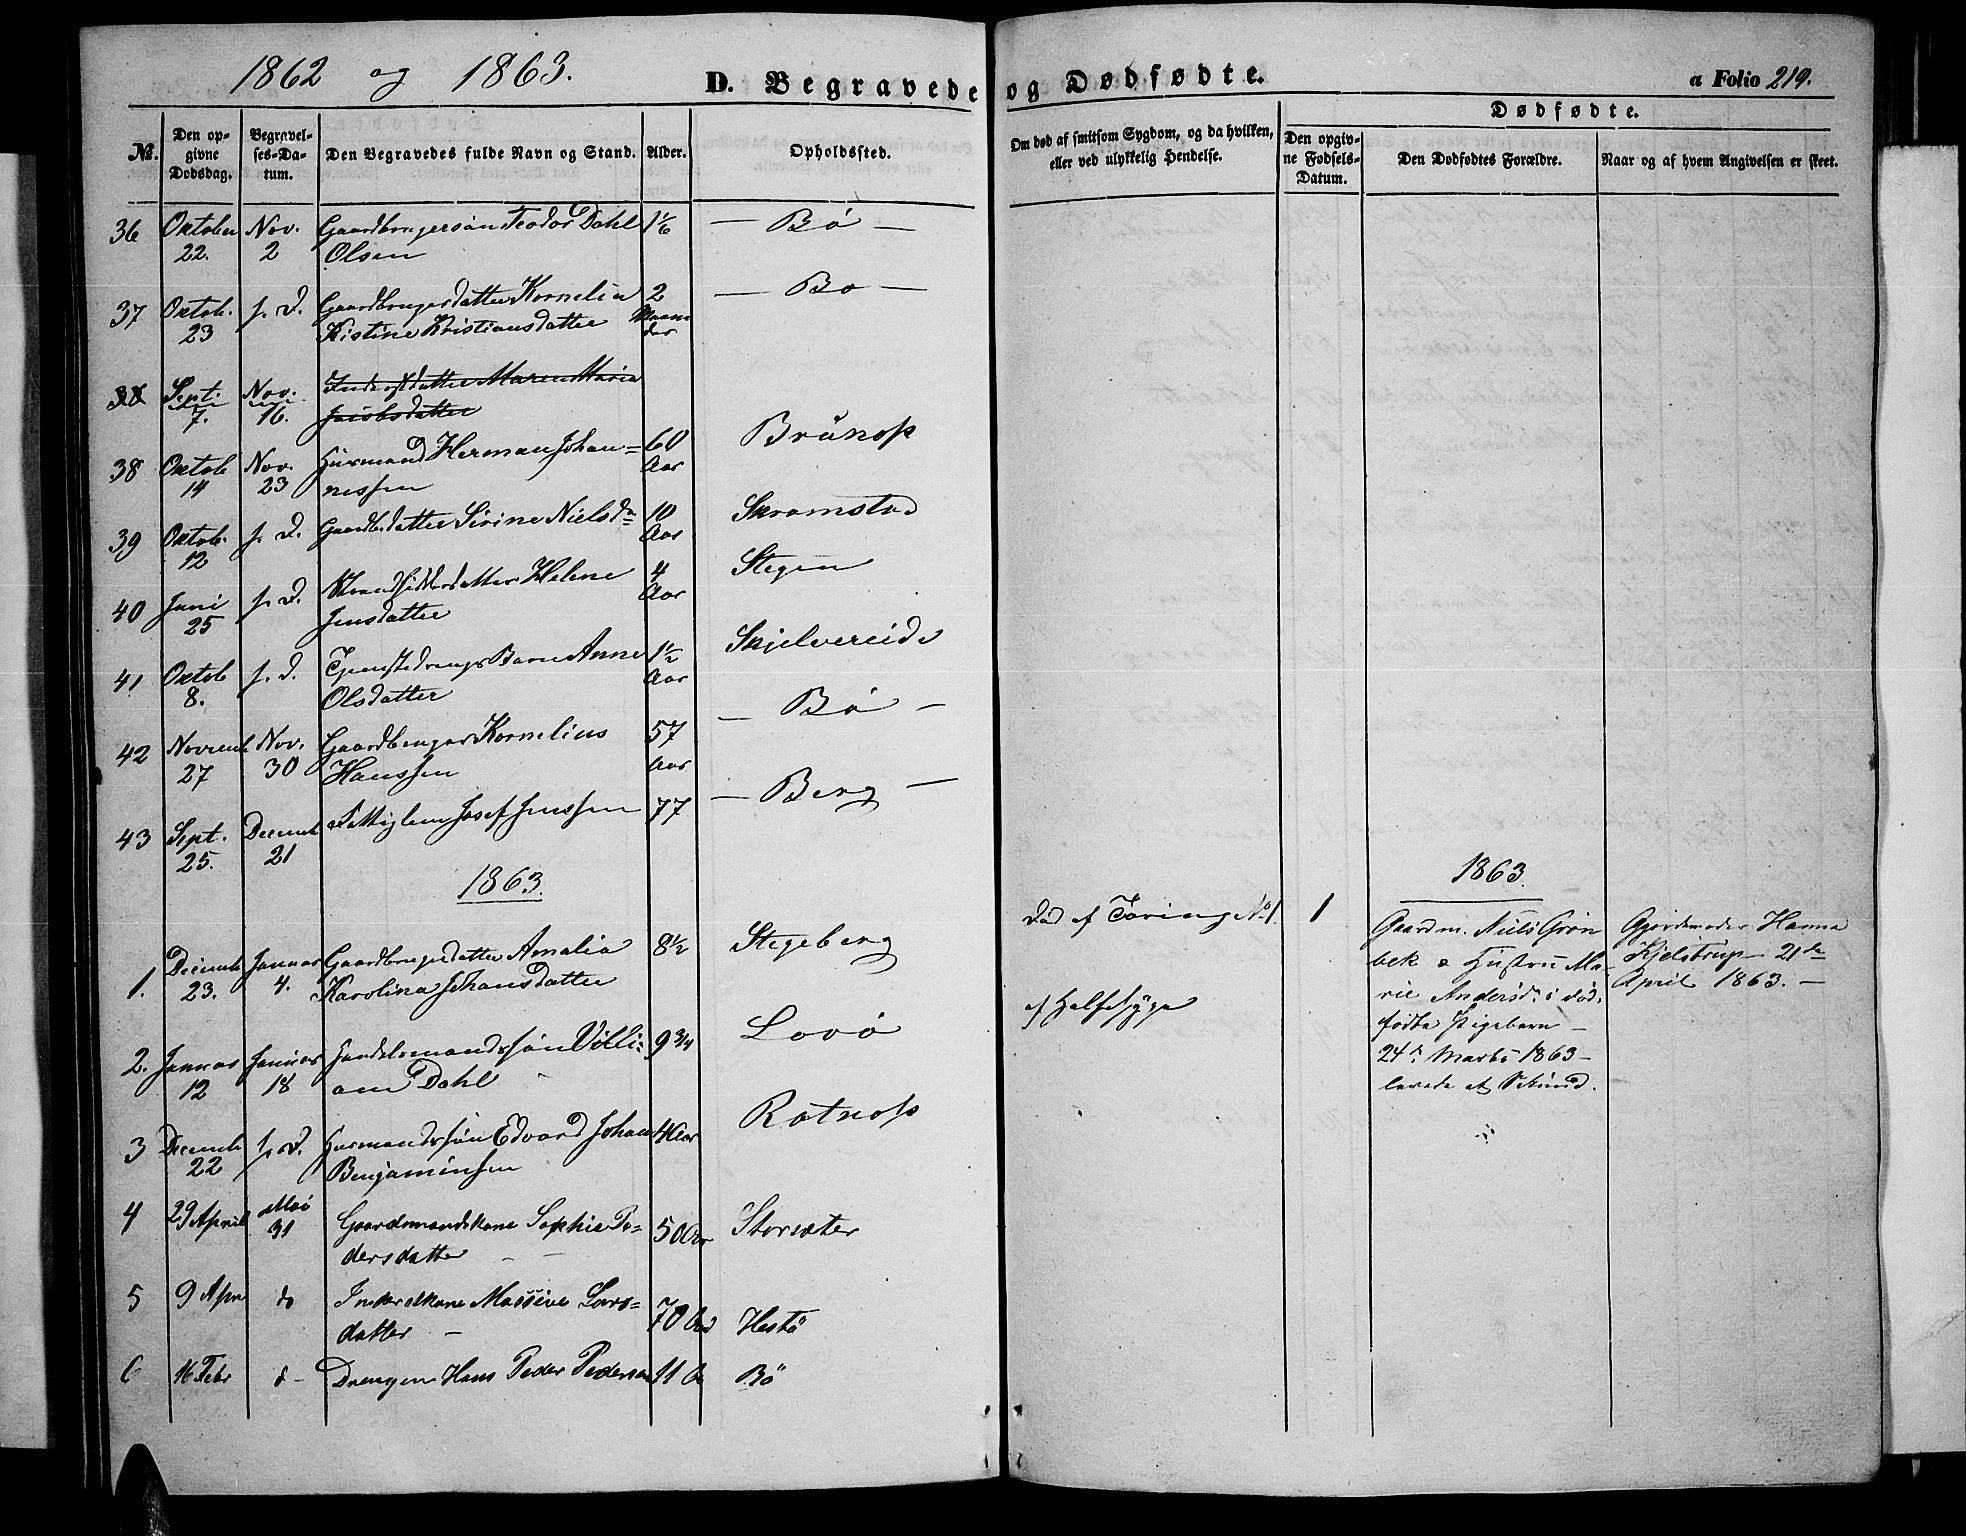 1862 og 1863.
D. Begravede og Dødfødte.
a Folio 219.
№.
Den opgivne Dødsdag.
Begravelses-Datum.
Den Begravedes fulde Navn og Stand.
Alder.
Opholdssted.
Om død af smitsom Sygdom, og da hvilken, eller ved ulykkelig Hendelse.
Dødfødte.
Den opgivne Fødsels-Datum.
Den Dødfødtes Forældre.
Naar og af hvem Angivelsen er skeet.
36 Oktober Nov. Gaardbrugersøn Teodor Dahl 1⅙ — Bö —
22. 2 Olsen
37 Oktob. s. D. Gaardbrugerdatter Kornelia 2 — Bö —
23 Kistine Kristiansdatter Maane
der
38 Sept. Nov. Inderstdatter Maren Maria
7. 16. Jacobsdatter
38 Oktob Nov. Husmand Herman Johan= 60 Brúnes
14 23 nessen Aar
39 Oktob. s. D. Gaardb.datter Sirine Nielsd= 10 Skramstad
12 Aar
40 Juni s. D. Strandsidderdatter Helene 4 Stegen
25 Jensdatter Aar
41 Oktob s. D. Tjenstedrengs Barn Anne 1½ Skjelvereide
8. Olsdatter Aar
42 Novemb Nov. Gaardbruger Kornelius 57 — Bö —
27 30 Hanssen Aar
43 Sept. Decemb Fattiglem Josef Jenssen 77 — Berg —
25. 21
1863.
1. Decemb Januar Gaardbrugerdatter Amalia 8½ Stegeberg
23. 4. Karolina Johansdatter
2. Januar Januar Handelsmandssön Villi= 9¾ Lovö
12 18 am Dahl
3 Decemb s. D. Husmandssön Edvard Johan 4 Aar Rotnes
22 Benjaminsen
4 29 April Mai Gaardmandskone Sophie Pe= 50 Aar Storsæter
31 dersdatter
5 9 Apr do Inderstkone Massive Lars= 70 Hestö
datter
6 16 Febr d- Drengen Hans Peder Pedersen 11 Bö
Död af Tæring No 1.
af Halsesyge
1
1863.
Gaardm. Niels Grön
bek & Hustru Ma-
rie Andersd.s död-
födte Pigebarn —
24de Marts 1863 —
levede et Sekund.
Gjordemoder Hanna
Kjelstrup 21de
April 1863. —